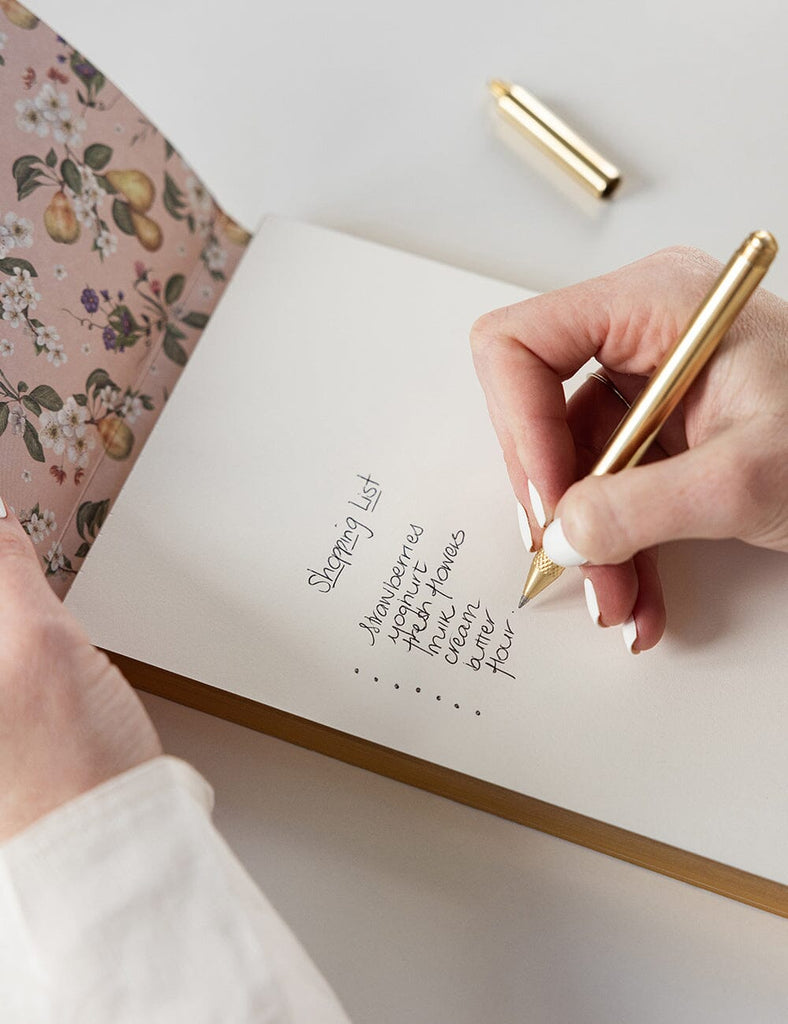 Shopping List
• strawberries
• yoghurt
• fresh flowers
• milk
• cream
• butter
• flour